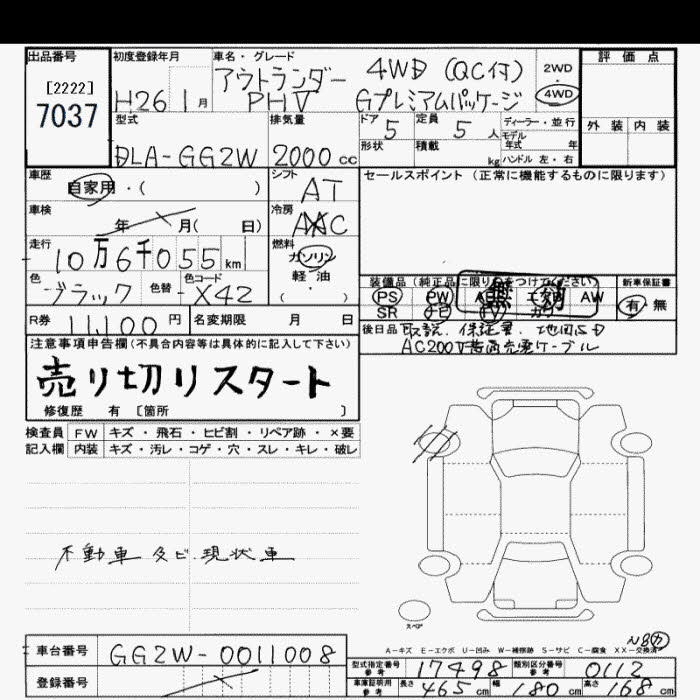 出品番号
[2222]
7037
初度登録年月
H26 1月
車名・グレード
アウトランダー 4WD (QC付)
PHV Gプレミアムパッケージ
2WD
4WD
評価点
外装 内装
型式
DLA-GG2W
排気量
2000cc
ドア 5
定員 5人
ディーラー・並行
モデル年式 年
形状
積載 kg
ハンドル 左・右
車歴
自家用・( )
シフト
AT
セールスポイント (正常に機能するものに限ります)
車検
年 月( 日)
冷房
AAC
走行
10万6千055km
燃料
ガソリン
軽・油
( ・ )
色
ブラック
色替
色コード
X42
装備品(純正品に限り○をつけてください)
PS PW ABS エアB AW
SR ナビ TV カワ
無効
新車保証書
有・無
R券
11,100円
名変期限 月 日
後日品
取説、保証書、地図SD
AC200V普通充電ケーブル
注意事項申告欄(不具合内容等は具体的に記入して下さい)
売り切りスタート
修復歴 有 [箇所 ]
検査員 FW キズ・飛石・ヒビ割・リペア跡・×要
記入欄 内装 キズ・汚レ・コゲ・穴・スレ・キレ・破レ
不動車及び現状車
スペア
A-キズ E-エクボ U-凹み W-補修跡 S-サビ C-腐食 XX-交換済
車台番号
GG2W-0011008
登録番号
型式指定番号 参考
17498
類別区分番号 参考
0112
車庫証明用 参考
長さ 465cm 幅 180cm 高さ 168cm